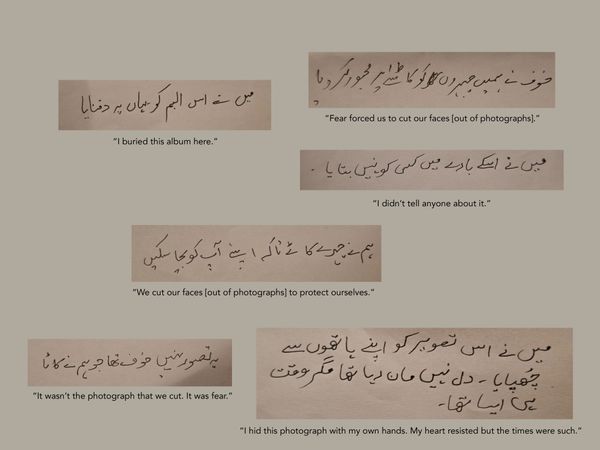 خوف نے ہمیں چہروں کو کاٹنے پر مجبور کر دیا
“Fear forced us to cut our faces [out of photographs].”
میں نے اس البم کو یہاں پہ دفنایا
“I buried this album here.”
میں نے اسکے بارے میں کسی کو نہیں بتایا۔
“I didn’t tell anyone about it.”
ہم نے چہرے کاٹے تاکہ اپنے آپ کو بچا سکیں
“We cut our faces [out of photographs] to protect ourselves.”
یہ تصویر نہیں خوف تھا جو ہم نے کاٹا
“It wasn’t the photograph that we cut. It was fear.”
میں نے اس تصویر کو اپنے ہاتھوں سے
چھپایا۔ دل نہیں مان رہا تھا مگر وقت
ہی ایسا تھا۔
“I hid this photograph with my own hands. My heart resisted but the times were such.”